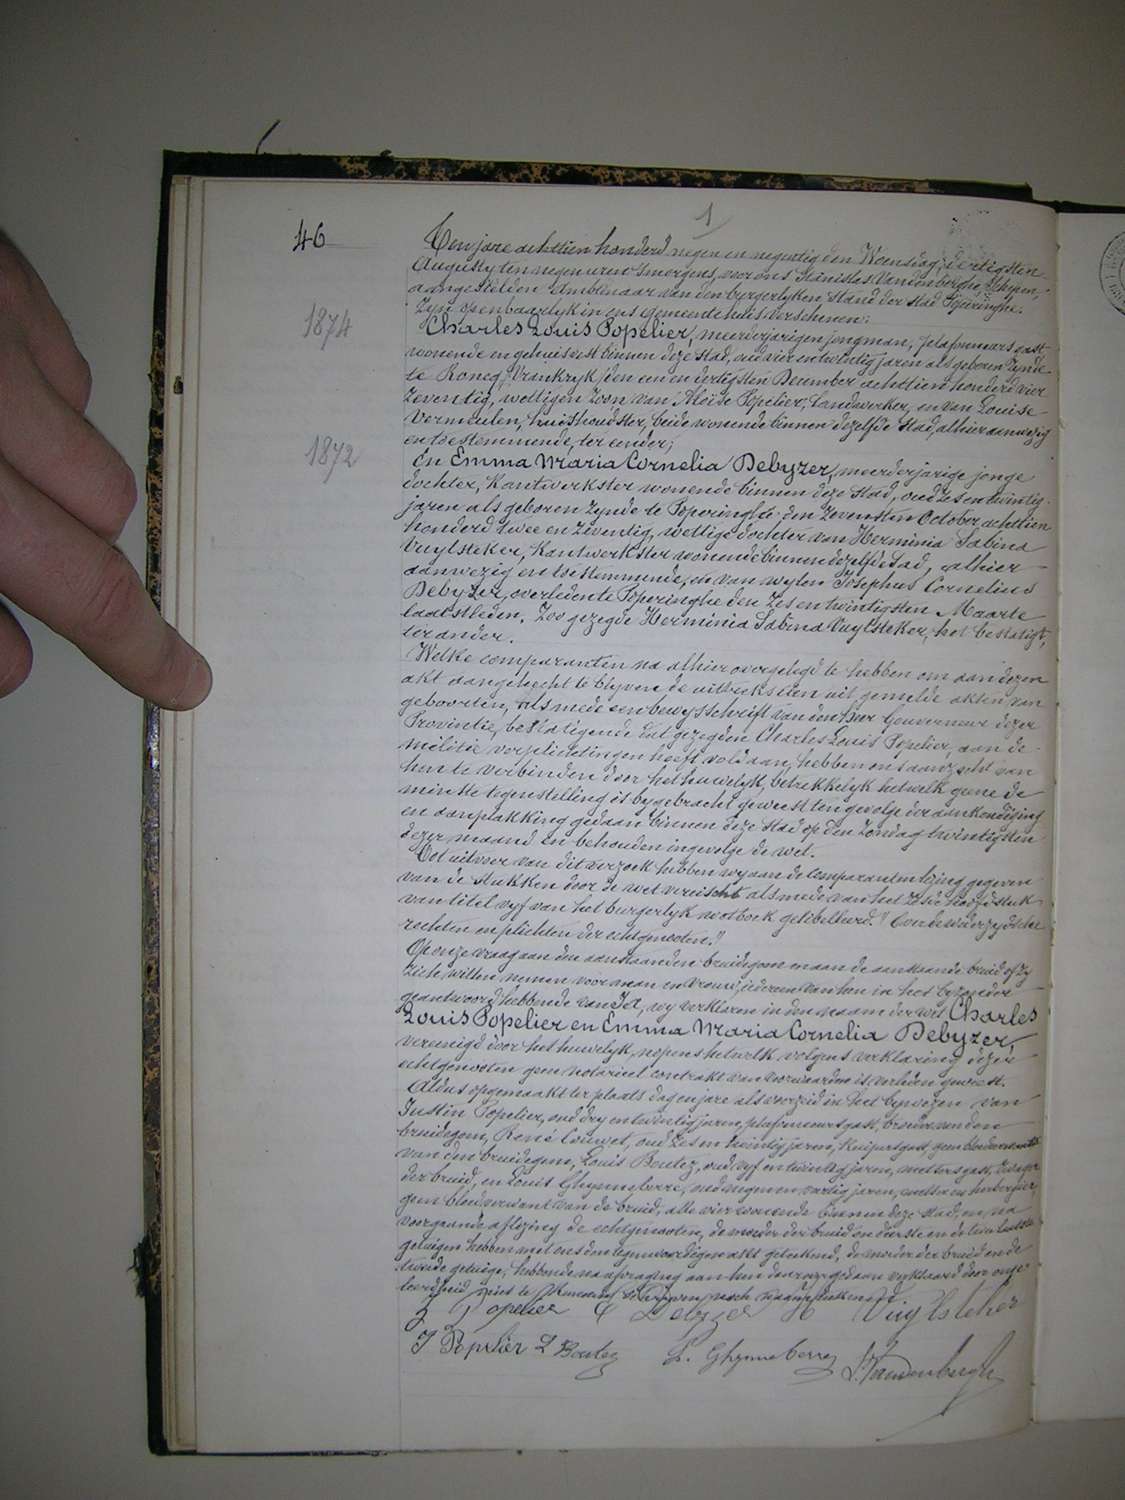 1
46
Ten jare achttien honderd negen en negentig den Woensdag, dertigsten
Augusty ten negen uren 's morgens, voor ons Stanislas Vandenberghe, Schepen,
aangestelden Ambtenaar van den burgerlyken stand der stad Poperinghe.
Zyn openbaarlyk in ons gemeentehuis verschenen:
1874
Charles Louis Popelier, meerderjarigen jongman, plafonneursgast
wonende en gehuisvest binnen deze stad, oud vier en twintig jaren als geboren zynde
te Roncq (Vrankryk) den een en dertigsten December achttien honderd vier
zeventig, wettigen zoon van Aloïse Popelier, landwerker, en van Louise
Vermeulen, huishoudster, beide wonende binnen dezelfde stad, alhier aanwezig
en toestemmende, ter eender;
1872
En Emma Maria Cornelia Debyzer, meerderjarige jonge
dochter, kantwerkster wonende binnen deze stad, oud zes en twintig
jaren als geboren zynde te Poperinghe den zevensten October achttien
honderd twee en zeventig, wettige dochter van Herminia Sabina
Vuylsteker, kantwerkster wonende binnen dezelfde stad, alhier
aanwezig en toestemmende, en van wylen Josephus Cornelius
Debyzer, overleden te Poperinghe den zes en twintigsten Maarte
laatstleden. Zoo gezegde Herminia Sabina Vuylsteker, het bestatigt,
ter ander.
Welke comparanten na alhier overgelegd te hebben om aan dezen
akt aangehecht te blyven, de uittreksels uit gemelde akten van
geboorten, als mede een bewysschrift van den Heer Gouverneur dezer
Provintie, bestatigende dat gezegden Charles Louis Popelier, aan de
militie verplichtingen heeft voldaan, hebben ons aanzocht van
hun te verbinden door het huwelyk, betrekkelyk hetwelk geene de
minste tegenstelling is bygebracht geweest ten gevolge der aankondiging
en aanplakking gedaan binnen deze stad op den Zondag twintigsten
dezer maand en behouden ingevolge de wet.
Tot uitvoer van dit verzoek hebben wy aan de comparanten lezing gegeven
van de stukken door de wet vereischt alsmede van het zesde hoofdstuk
van titel vyf van het burgerlyk wetboek getiteld "Over de wederzydsche
rechten en plichten der echtgenooten."
Op onze vraag aan den aanstaanden bruidegom en aan de aanstaande bruid of zy
zich willen nemen voor man en vrouw, iedereen van hen in het byzonder
geantwoord hebbende van Ja, wy verklaren in den naam der wet Charles
Louis Popelier en Emma Maria Cornelia Debyzer,
vereenigd door het huwelyk, nopens hetwelk volgens verklaring dezer
echtgenooten geen notarieel contrakt van voorwaarden is verleden geweest.
Aldus opgemaakt ter plaats dag en jare als voorzeid in het bywezen van
Justin Popelier, oud dry en twintig jaren, plafonneursgast, broeder van den
bruidegom, René Couwet, oud zes en twintig jaren, kuipersgast, geen bloedverwant
van den bruidegom, Louis Boutez, oud vyf en twintig jaren, metsersgast, zwager
der bruid, en Louis Ghynneberre, oud negen en veertig jaren, herbergier
geen bloedverwant van de bruid, alle vier wonende binnen deze stad, en na
voorgaande aflezing de echtgenooten, de moeder der bruid en de eerste en de twee laatste
getuigen hebben met ons den tegenwoordigen akt geteekend, de moeder der bruid en de
tweede getuige, hebbende na afvraging aan hun daarover gedaan verklaard door onge-
leerdheid niet te kunnen schryven noch naamteekenen.
Popelier E Debyzer H Vuylsteker
J Popelier L Boutez L. Ghynneberre S. Vandenberghe